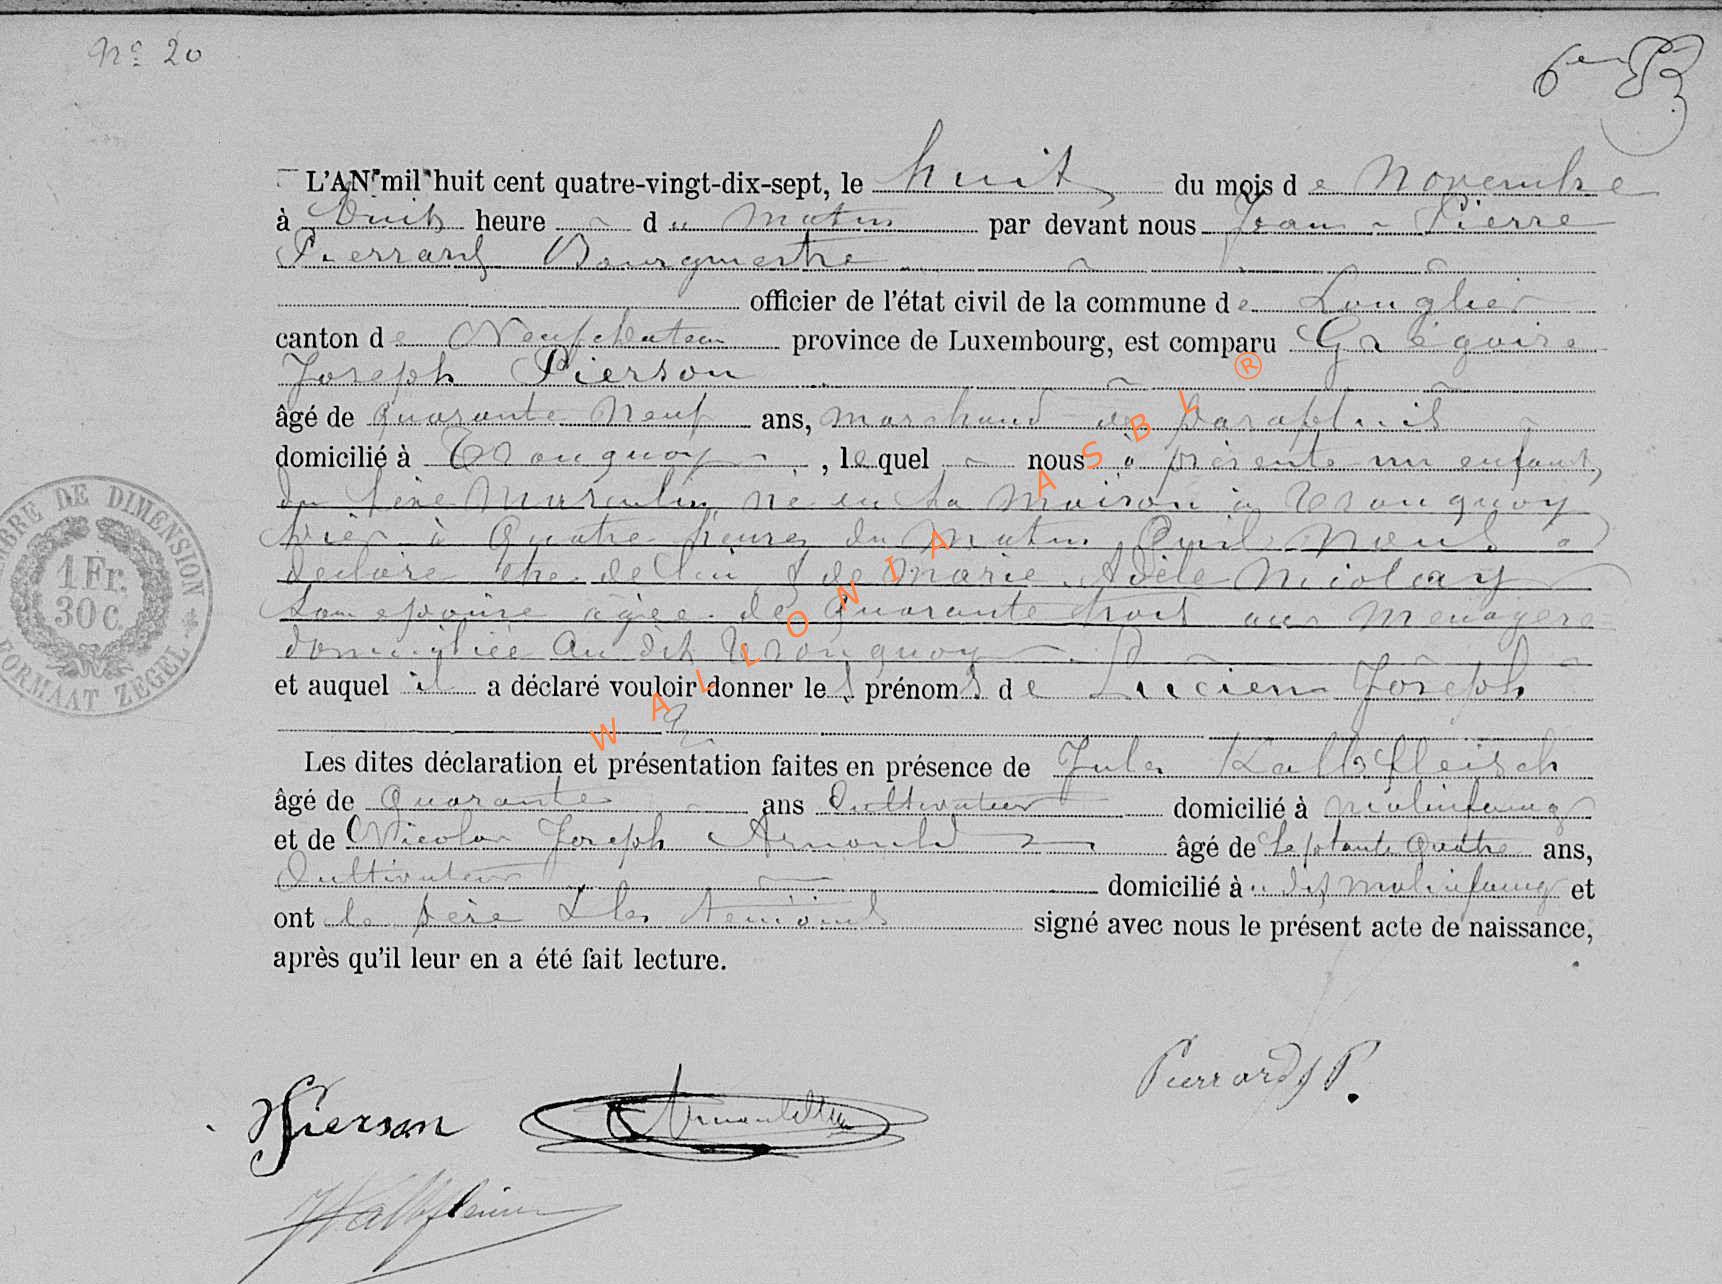 Nº 20
6en
L'AN mil huit cent quatre-vingt-dix-sept, le huit du mois de Novembre
à huit heure du matin par devant nous Jean Pierre
Pierrard Bourgmestre
officier de l'état civil de la commune de Longlier
canton de Neufchateau province de Luxembourg, est comparu Grégoire
Joseph Pierson
âgé de quarante neuf ans, marchand de parapluis
domicilié à Tronquoy, lequel nous à présenté un enfant,
du sexe Masculin, né en sa maison à Tronquoy
hier à Quatre heures du Matin, qu'il Nous a
declare etre de lui & de Marie Adèle Nicolay
son epouse agée de quarante trois ans menagère
domiciliée au dit Tronquoy
et auquel il a déclaré vouloir donner les prénoms de Lucien Joseph
Les dites déclaration et présentation faites en présence de Jules Kalbfleisch
âgé de Quarante ans Cultivateur domicilié à Molinfaing
et de Nicolas Joseph Arnould âgé de Septante Quatre ans,
Cultivateur domicilié à u dit Molinfaing et
ont le père & les temoins signé avec nous le présent acte de naissance,
après qu'il leur en a été fait lecture.
TIMBRE DE DIMENSION
1 Fr.
30 c.
FORMAAT ZEGEL
WALLONIA ASBL ®
Pierrard JP.
Pierson
Arnould
Kalbfleisch